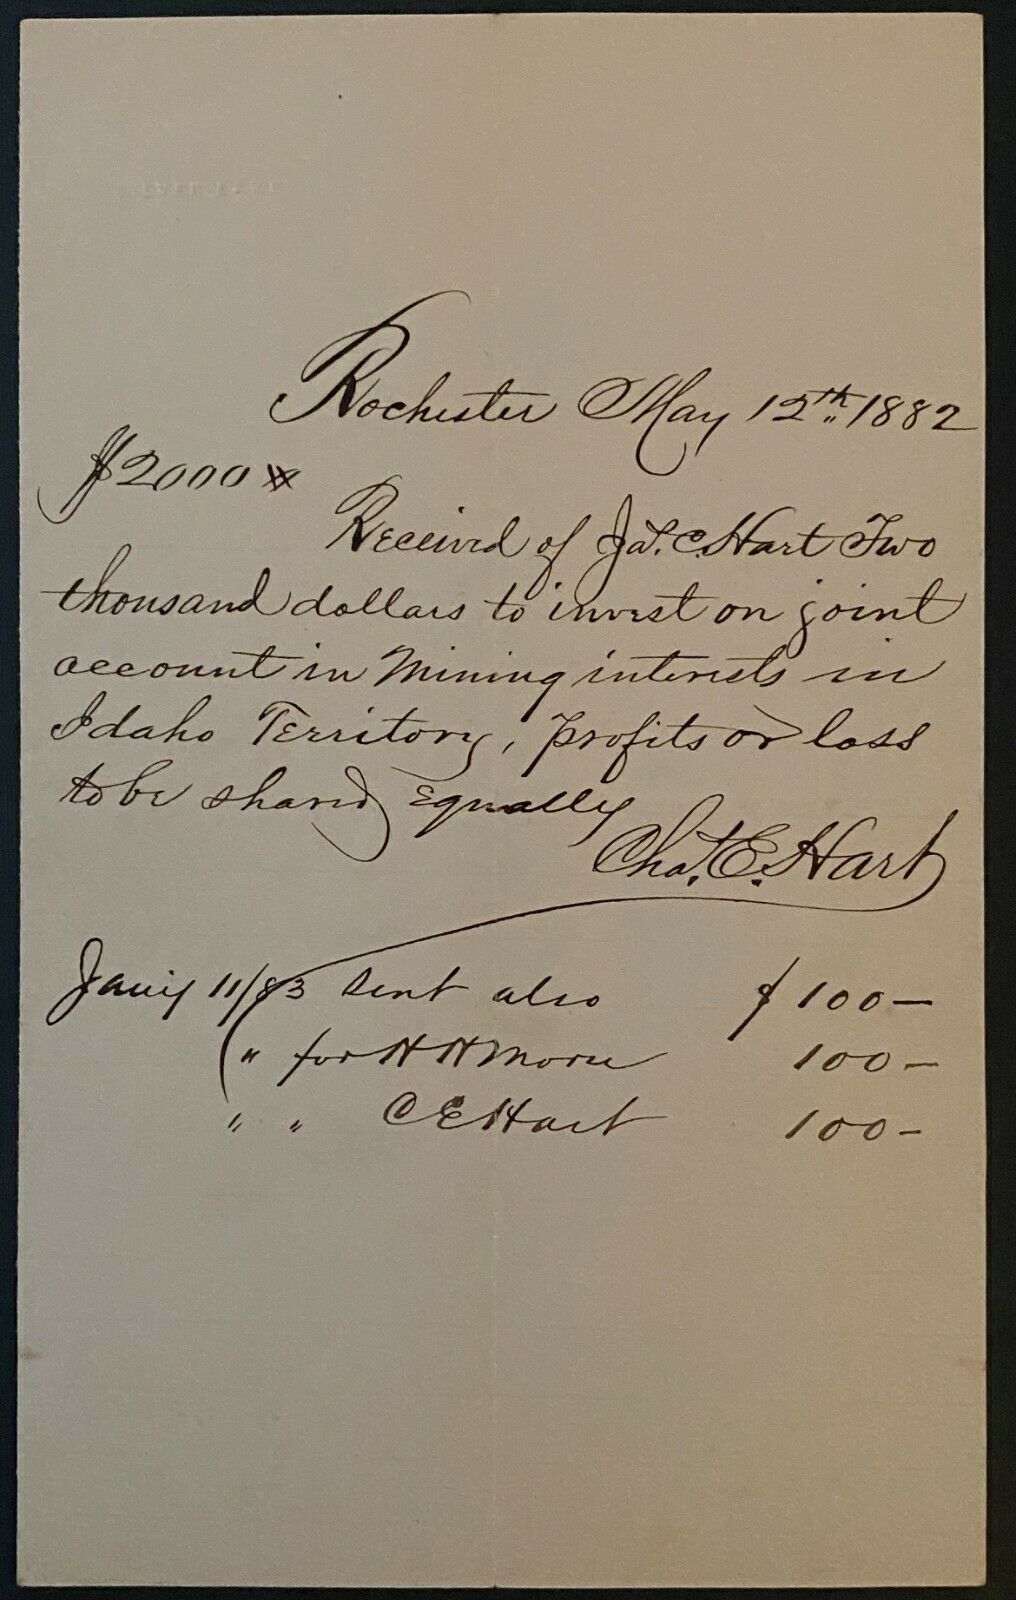 Rochester May 12th 1882
$2000
Received of Jas. C. Hart Two
thousand dollars to invest on joint
account in Mining interests in
Idaho Territory, Profits or loss
to be shared Equally
Chas. E. Hart
Jany 11/83 Sent also $100—
" for H H 100—
" " C E Hart 100—